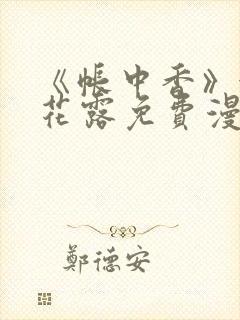 《帐中香》
花露免費漫
鄭德安